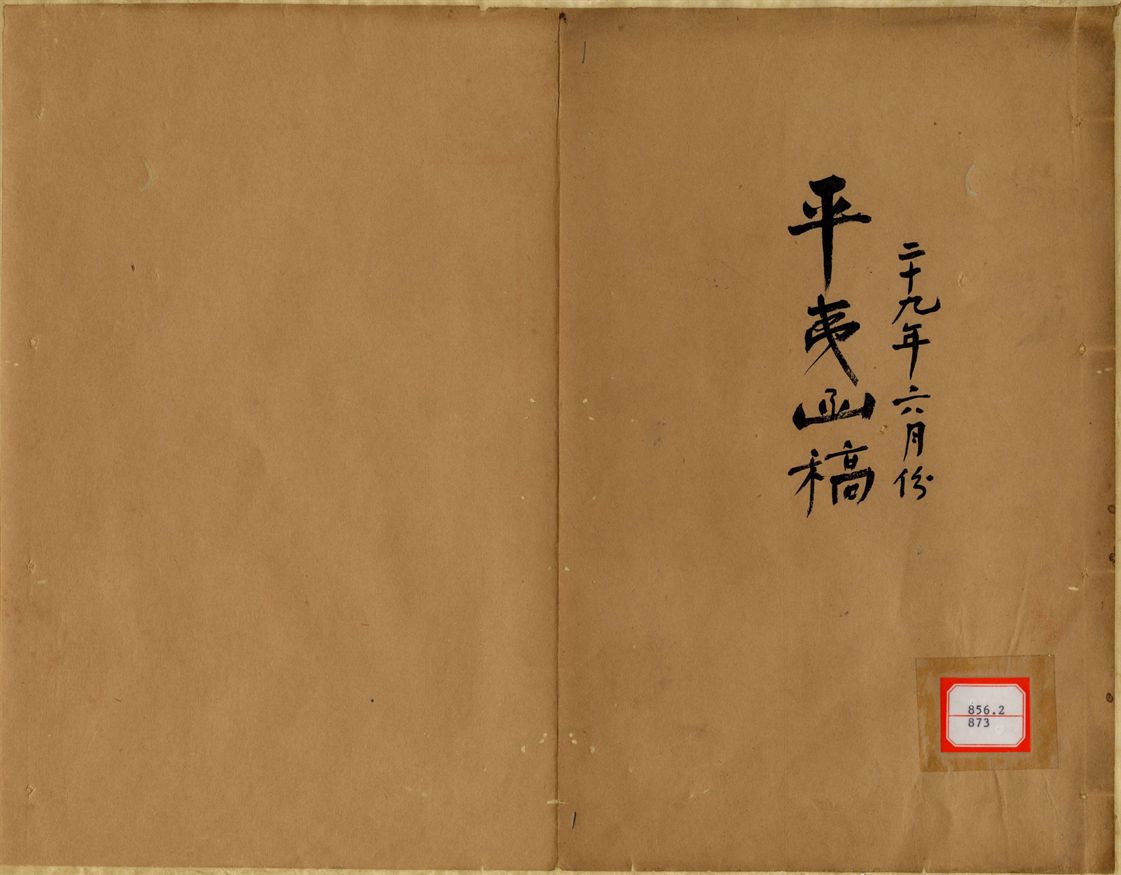 二十九年六月份
平夷函稿
856.2
873